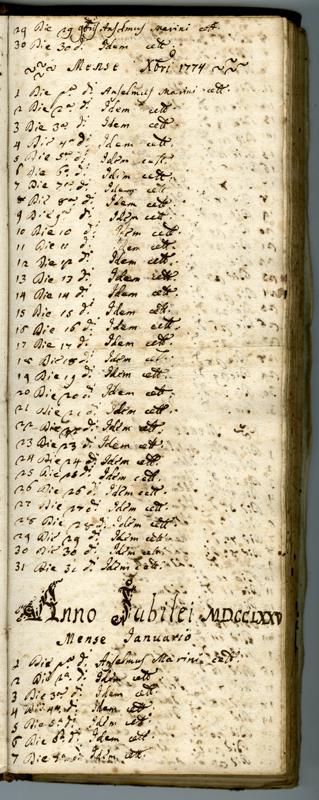 29 Die 29 9bris Anselmus Marini cett.
30 Die 30 dᵢ Idem cett.
Mense Xbri 1774
1 Die pª dᵢ Anselmus Marini cett.
2 Die 2ª dᵢ Idem cett.
3 Die 3ª dᵢ Idem cett
4 Die 4ª dᵢ Idem cett.
5 Die 5ª dᵢ Idem cett.
6 Die 6ª dᵢ Idem cett.
7 Die 7ª dᵢ Idem cett.
8 Die 8ª dᵢ Idem cett.
9 Die 9ª dᵢ Idem cett.
10 Die 10 dᵢ Idem cett.
11 Die 11 dᵢ Idem cett.
12 Die 12 dᵢ Idem cett.
13 Die 13 dᵢ Idem cett.
14 Die 14 dᵢ Idem cett.
15 Die 15 dᵢ Idem cett.
16 Die 16 dᵢ Idem cett.
17 Die 17 dᵢ Idem cett.
18 Die 18 dᵢ Idem cett.
19 Die 19 dᵢ Idem cett.
20 Die 20 dᵢ Idem cett.
21 Die 21 dᵢ Idem cett.
22 Die 22 dᵢ Idem cett.
23 Die 23 dᵢ Idem cett
24 Die 24 dᵢ Idem cett.
25 Die 25 dᵢ Idem cett.
26 Die 26 dᵢ Idem cett.
27 Die 27 dᵢ Idem cett.
28 Die 28 dᵢ Idem cett.
29 Die 29 dᵢ Idem cett.
30 Die 30 dᵢ Idem cett.
31 Die 31 dᵢ Idem cett.
Anno Jubilei MDCCLXXV
Mense Januario
1 Die pª dᵢ Anselmus Marini cett.
2 Die 2ª dᵢ Idem cett.
3 Die 3ª dᵢ Idem cett.
4 Die 4ª dᵢ Idem cett.
5 Die 5ª dᵢ Idem cett.
6 Die 6ª dᵢ Idem cett.
7 Die 7ª dᵢ Idem cett.